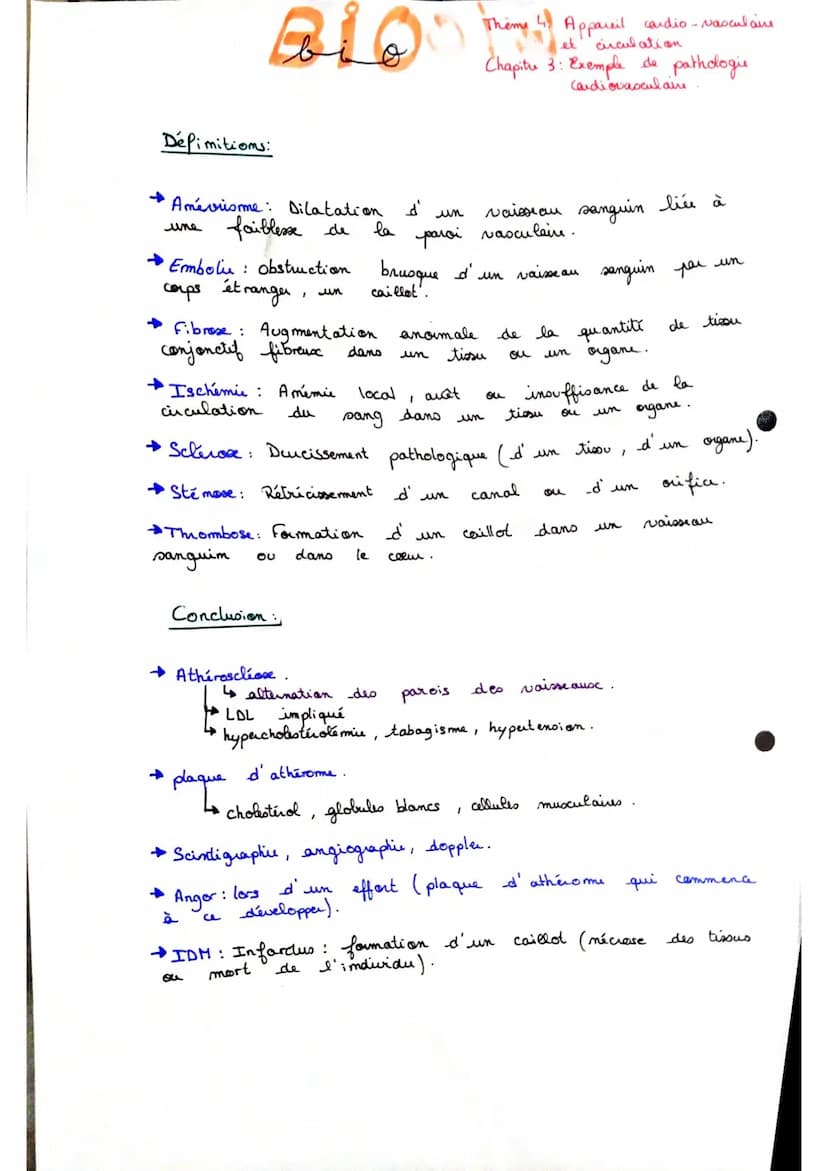 BIO
bio
Thème 4: Appareil cardio-vasculaire
et circulation
Chapitre 3: Exemple de pathologie
cardiovasculaire.
Définitions:
→ Anévrisme: Dilatation d'un vaisseau sanguin liée à
une faiblesse de la paroi vasculaire.
→ Embolie: obstruction brusque d'un vaisseau sanguin par un
corps étranger, un caillot.
→ Fibrose: Augmentation anormale de la quantité de tissu
conjonctif fibreux dans un tissu ou un organe.
→ Ischémie: Anémie local, arrêt ou insuffisance de la
circulation du sang dans un tissu ou un organe.
→ Sclérose: Durcissement pathologique (d'un tissu, d'un organe).
→ Sténose: Rétricissement d'un canal ou d'un orifice.
→ Thrombose: Formation d'un caillot dans un vaisseau
sanguin ou dans le cœur.
Conclusion:
→ Athérosclérose.
↳ alternation des parois des vaisseaux.
↳ LDL impliqué
↳ hypercholestérolémie, tabagisme, hypertension.
→ plaque d'athérome.
↳ cholestérol, globules blancs, cellules musculaires.
→ Scintigraphie, angiographie, doppler.
→ Angor: lors d'un effort (plaque d'athérome qui commence
à ce développer).
→ IDM: Infarctus: formation d'un caillot (nécrose des tissus
ou mort de l'individu).